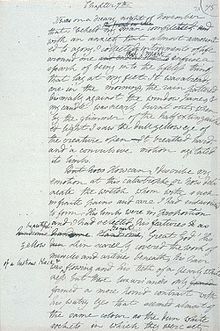 Chapter 7th
It was on a dreary night of November
that I beheld my man completed and
with an anxiety that almost amounted
to agony I collected instruments of life
around me that I might infuse a
spark of being into the lifeless thing
that lay at my feet. It was already
one in the morning, the rain pattered
dismally against the window panes &
my candle was nearly burnt out, when
by the glimmer of the half extinguish
ed light I saw the dull yellow eye of
the creature open. It breathed hard,
and a convulsive motion agitated
its limbs.
But how How can I describe my
emotion at this catastrophe; or how deli
neate the wretch whom with such in
finite pains and care I had endeavoured
to form. His limbs were in proportion
and I had selected his features as
beautiful
handsome Great God! His
yellow skin scarcely covered the work of
muscles and arteries beneath; his hair
of a lustrous black &
was flowing and his teeth of a pearly white
ness but these luxuriances only
formed a more horrid contrast with
his watry eyes that seemed almost of
the same colour as the dun white
sockets in which they were set